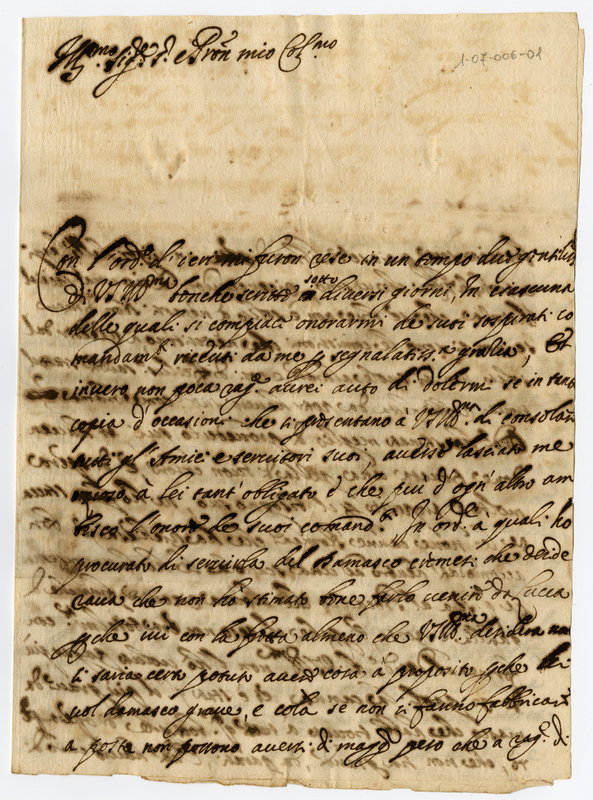 Ill.mo Sig.re S.re e Pron mio Col.mo
1-07-006-01
Con l'ord.o di ieri mi furon rese in un tempo due gentiliss.e
di VS Ill.ma benche scritte sotto diversi giorni, In ciascuna
delle quali si compiace onorarmi de suoi sospirati co
mandam.ti ricevuti da me p segnalatiss.a grazia, Et
invero non poca rag.e aurei auto di dolermi se in tanta
copia d'occasioni che si presentano à VS Ill.ma di consolar
tutti gl'Amici e servitori suoi, avesse lasciato me
ozioso, à lei tant' obligato e che più d'ogn' altro am
bisco l'onore de suoi comand.ti In ord.e à quali ho
procurato di servirla del Damasco cremesi che deside
rava che non ho stimato bene farlo venire da Lucca
pche ivi con la fretta almeno che VS Ill.ma desidera non
si saria certo potuto avere cosa à proposito pche lei
vol damasco grave, e colà se non si fanno fabbricare
a posta non possono aversi di magg.r peso che a rag.e di